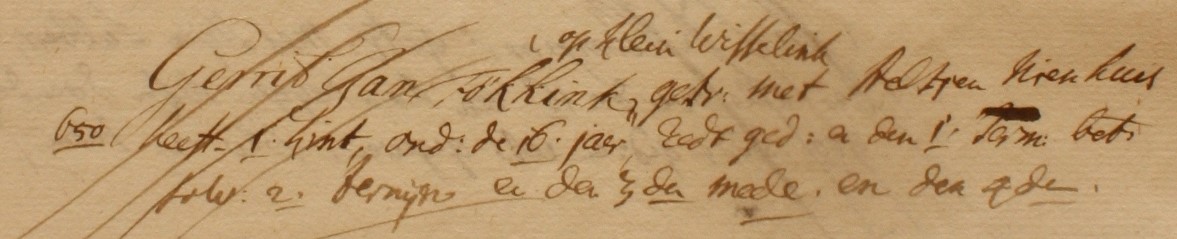 op Klein Wisselink
Gerrit Jan Fökkink, getr: met Aeltjen Nienhuis
650 heeft 1. kint, ond: de 16. jaer, Eedt ged: en den 1. Term: bet:
solv: 2. Termijn en den 3 den mede. en den 4 den.